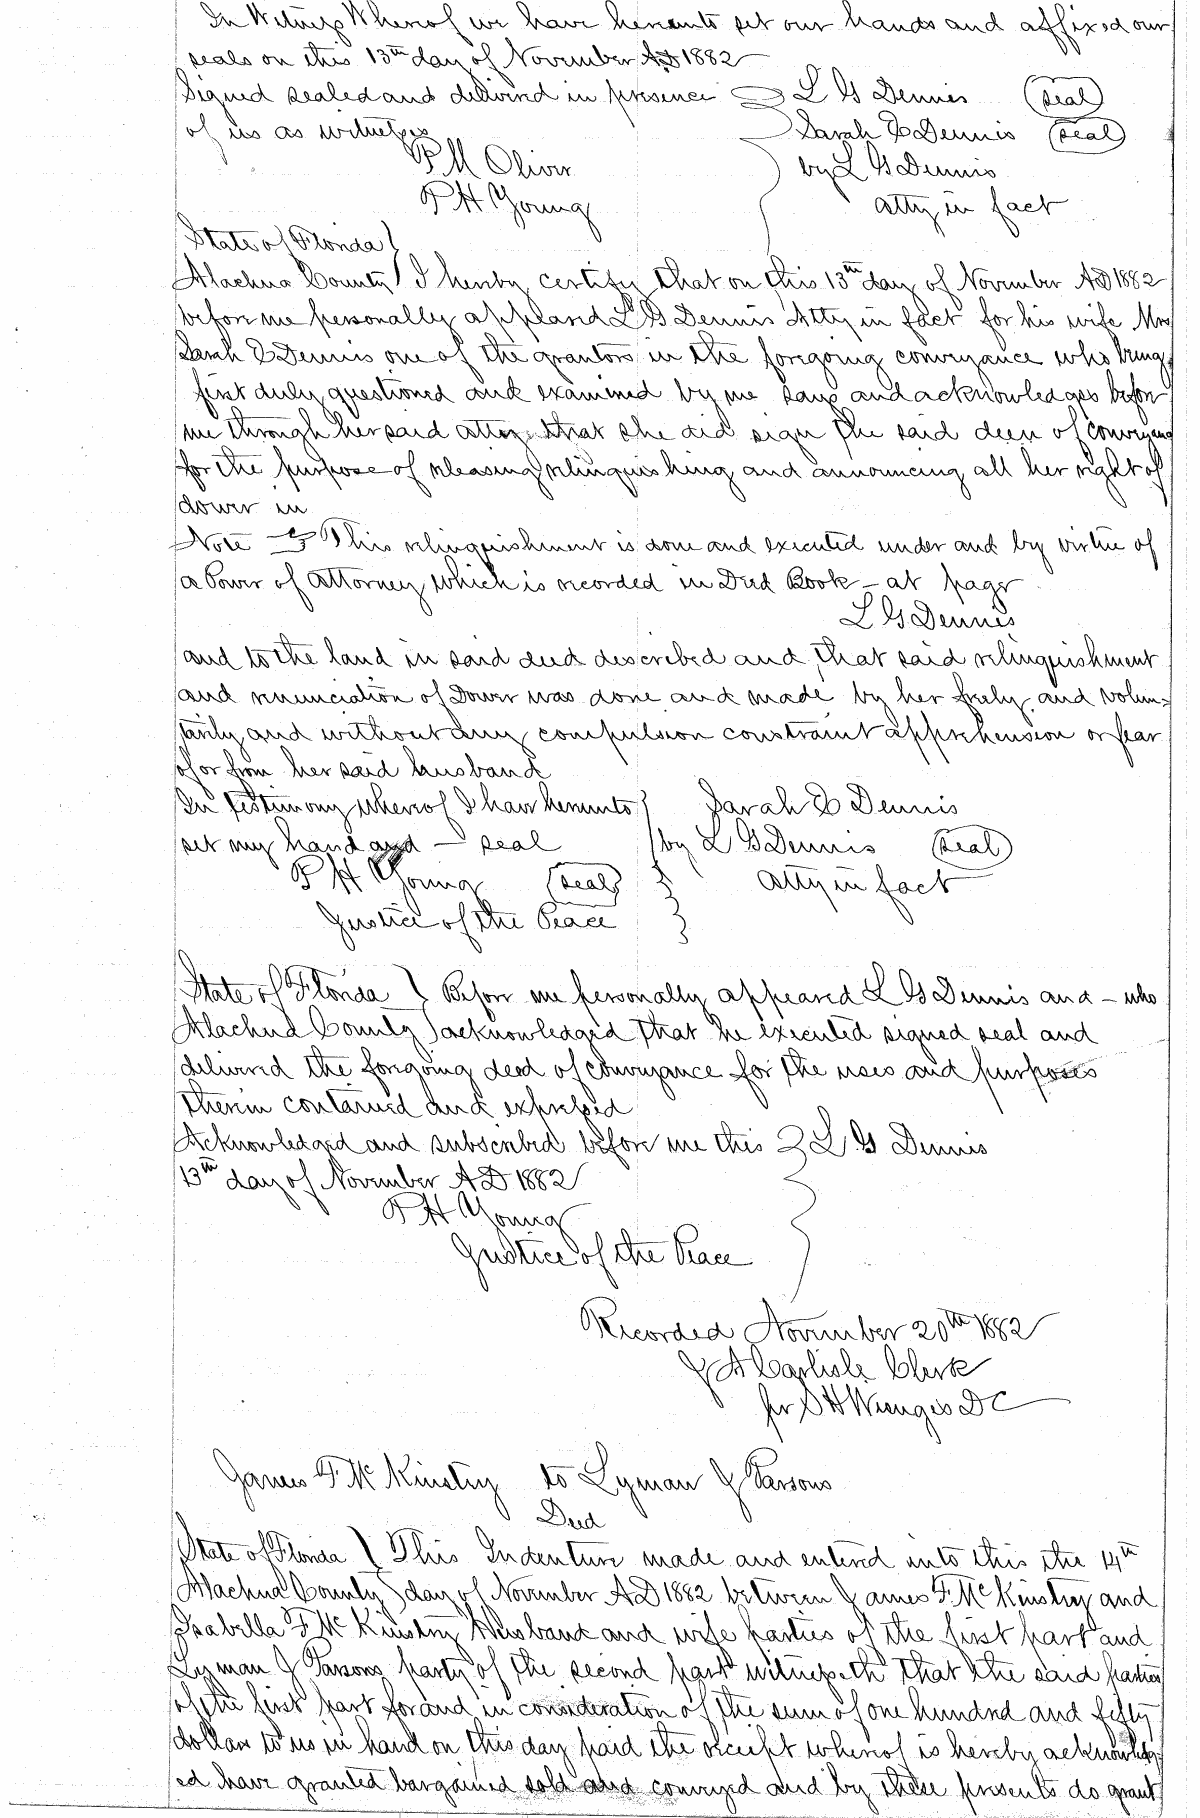 In Witness Whereof we have hereunto set our hands and affixed our
seals on this 13th day of November AD 1882
Signed sealed and delivered in presence L G Dennis (seal)
of us as witnesses Sarah E Dennis (seal)
P M Oliver by L G Dennis
P H Young atty in fact
State of Florida
Alachua County I hereby certify that on this 13th day of November AD 1882
before me personally appeared L G Dennis Atty in fact for his wife Mrs
Sarah E Dennis one of the grantors in the foregoing conveyance who being
first duly questioned and examined by me says and acknowledges before
me through her said atty that she did sign the said deed of conveyance
for the purpose of releasing relinquishing and announcing all her right of
dower in
Note This relinquishment is done and executed under and by virtue of
a Power of Attorney which is recorded in Deed Book – at page
L G Dennis
and to the land in said deed described and that said relinquishment
and renunciation of Dower was done and made by her freely and volun=
tarily and without any compulsion constraint apprehension or fear
of or from her said husband
In testimony whereof I have hereunto Sarah E Dennis
set my hand and – seal by L G Dennis (seal)
P H Young (seal) atty in fact
Justice of the Peace
State of Florida Before me personally appeared L G Dennis and – who
Alachua County acknowledged that he executed signed seal and
delivered the foregoing deed of conveyance for the uses and purposes
therein contained and expressed
Acknowledged and subscribed before me this L G Dennis
13th day of November AD 1882
P H Young
Justice of the Peace
Recorded November 20th 1882
J A Carlisle Clerk
per S H Wienges DC
James F McKinstry to Lyman J Parsons
Deed
State of Florida This Indenture made and entered into this the 14th
Alachua County day of November AD 1882 between James F. McKinstry and
Isabella F McKinstry Husband and wife parties of the first part and
Lyman J Parsons party of the second part witnesseth that the said parties
of the first part for and in consideration of the sum of one hundred and fifty
dollars to us in hand on this day paid the receipt whereof is hereby acknowledg
ed have granted bargained sold and conveyed and by these presents do grant